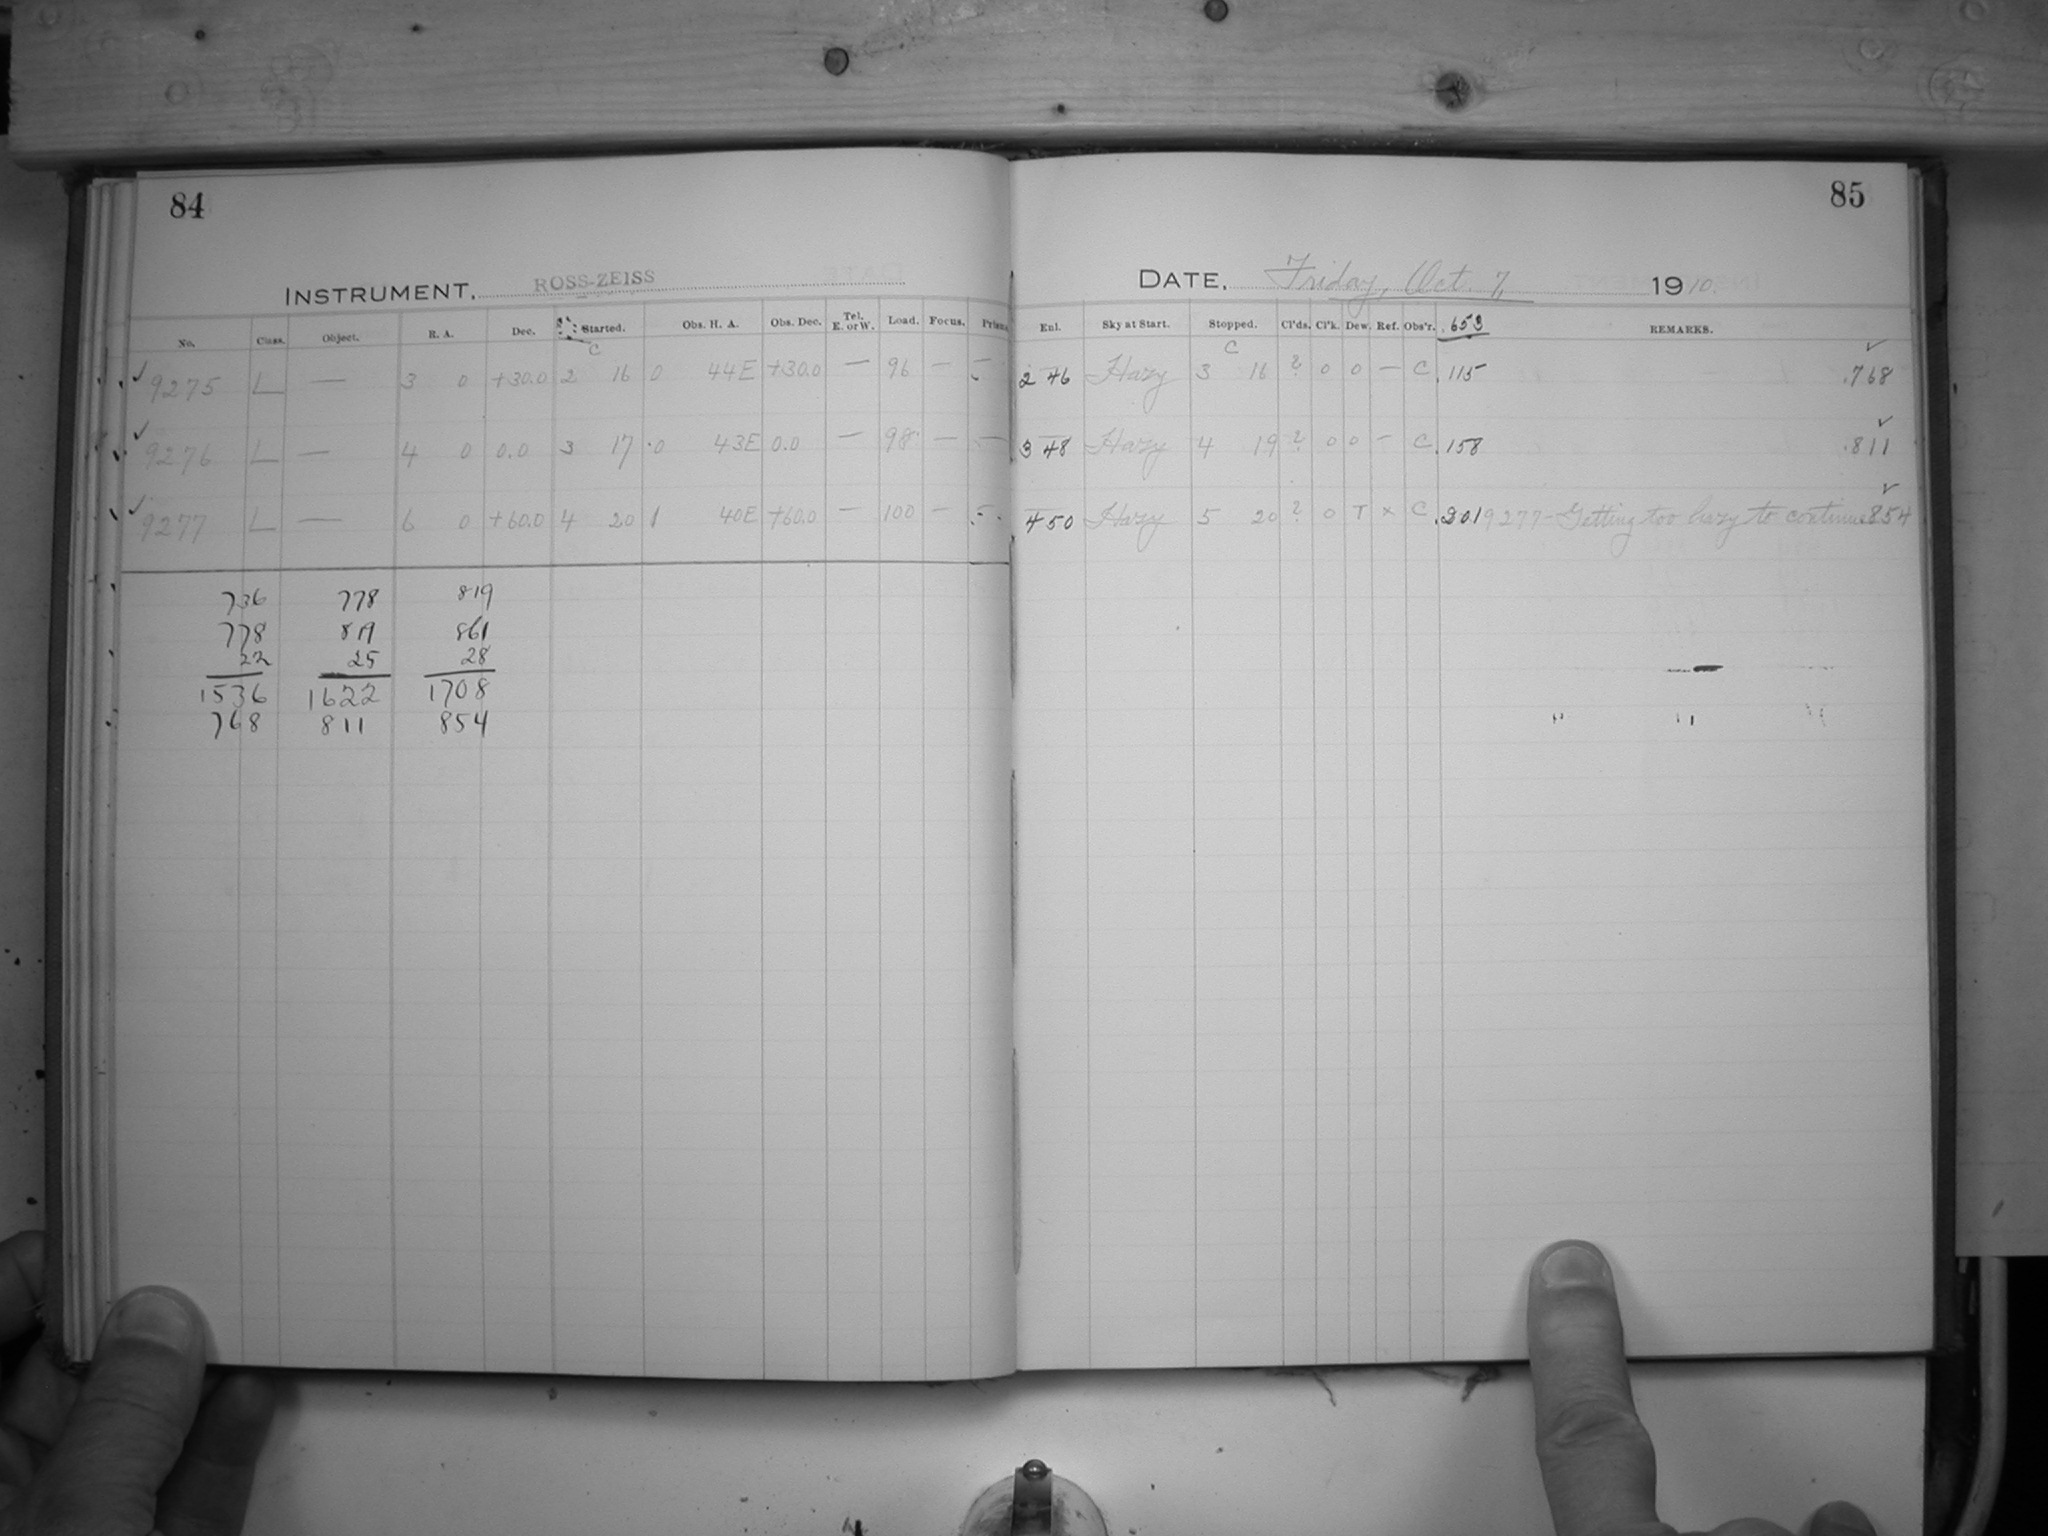 84
INSTRUMENT. ROSS-ZEISS
No. Class. Object. R. A. Dec. Started. Obs. H. A. Obs. Dec. Tel. E. or W. Load. Focus. Prism
C
✓ 9275 L — 3 0 +30.0 2 16 0 44E +30.0 — 96 — —
✓ 9276 L — 4 0 0.0 3 17 0 43E 0.0 — 98 — —
✓ 9277 L — 6 0 +60.0 4 20 1 40E +60.0 — 100 — —
736 778 819
778 819 861
22 25 28
1536 1622 1708
768 811 854
85
DATE. Friday, Oct. 7, 1910.
Enl. Sky at Start. Stopped. Cl'ds. Cl'k. Dew. Ref. Obs'r. .653 REMARKS.
C
2 46 Hazy 3 16 ? 0 0 — C .115 .768 ✓
3 48 Hazy 4 19 ? 0 0 — C .158 .811 ✓
4 50 Hazy 5 20 ? 0 T × C .201 9277—Getting too hazy to continue .854 ✓